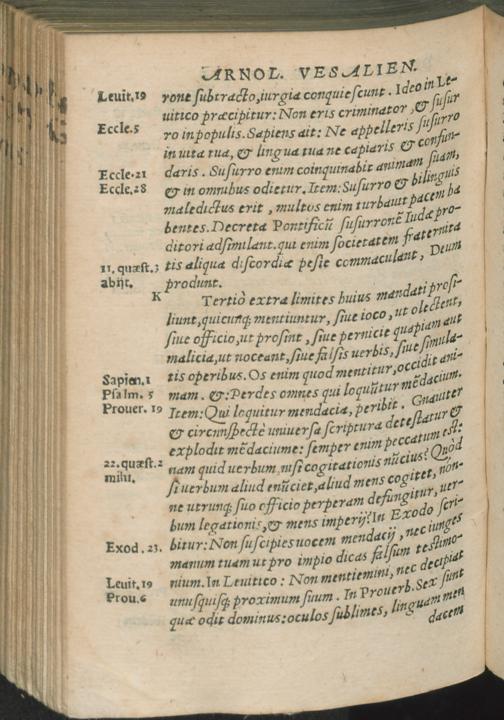 ARNOL. VESALIEN.
Leuit.19 rone subtracto, iurgia conquiescunt. Ideo in Le-
uitico præcipitur: Non eris criminator, & susur
Eccle.5 ro in populis. Sapiens ait: Ne appelleris susurro
in uita tua, & lingua tua ne capiaris & confun-
Eccle.21 daris. Susurro enim coinquinabit animam suam,
Eccle.28 & in omnibus odietur. Item: Susurro & bilinguis
maledictus erit, multos enim turbauit pacem ha
bentes. Decreta Pontificũ susurronẽ Iudæ pro-
ditori adsimulant. qui enim societatem fraternita
11. quæst.3 tis aliqua discordiæ peste commaculant, Deum
abijt. produnt.
K Tertiò extra limites huius mandati prosi-
liunt, quicunq; mentiuntur, siue ioco, ut oblectent,
siue officio, ut prosint, siue pernicie quapiam aut
malicia, ut noceant, siue falsis uerbis, siue simula-
Sapien.1 tis operibus. Os enim quod mentitur, occidit ani-
Psalm. 5 mam. &: Perdes omnes qui loquũtur mẽdacium.
Prouer. 19 Item: Qui loquitur mendacia, peribit. Gnauiter
& circunspectè uniuersa scriptura detestatur &
explodit mẽdaciume: semper enim peccatum est:
22. quæst.2 nam quid uerbum, nisi cogitationis nũcius? Quòd
mihi. si uerbum aliud enũciet, aliud mens cogitet, nón-
ne utrunq; suo officio perperam defungitur, uer-
bum legationis, & mens imperij? In Exodo scri-
Exod. 23. bitur: Non suscipies uocem mendacij, nec iunges
manum tuam ut pro impio dicas falsum testimo-
Leuit,19 nium. In Leuitico: Non mentiemini, nec decipiat
Prou.6 unusquisq; proximum suum. In Prouerb. Sex sunt
quæ odit dominus: oculos sublimes, linguam men
dacem